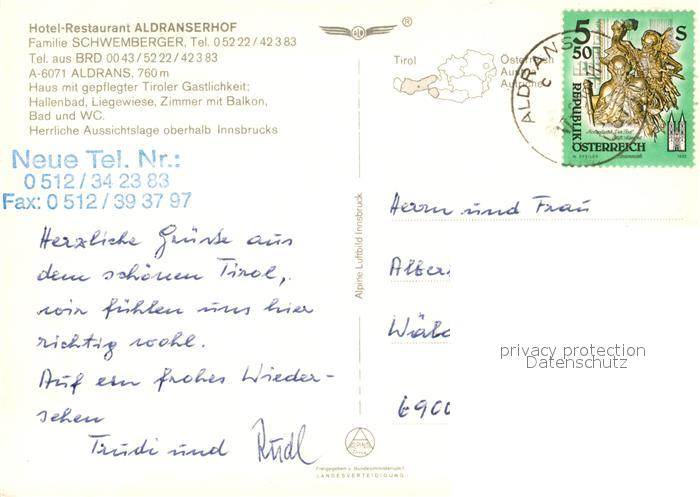 Hotel-Restaurant ALDRANSERHOF
Familie SCHWEMBERGER, Tel. 0 52 22 / 42 3 83
Tel. aus BRD 00 43 / 52 22 / 42 3 83
A-6071 ALDRANS, 760 m
Haus mit gepflegter Tiroler Gastlichkeit;
Hallenbad, Liegewiese, Zimmer mit Balkon,
Bad und WC.
Herrliche Aussichtslage oberhalb Innsbrucks
Neue Tel. Nr.:
0 512 / 34 23 83
Fax: 0 512 / 39 37 97
Herzliche Grüße aus
dem schönen Tirol,
wir fühlen uns hier
richtig wohl.
Auf ein frohes Wieder-
sehen
Trudi und Rudl
Alpine Luftbild Innsbruck
ALPINE
Freigegeben v. Bundesministerium f.
LANDESVERTEIDIGUNG
AD
®
Tirol
Österreich
ALDRANS
5 50 S
REPUBLIK
ÖSTERREICH
Herrn und Frau
Alber
Wäld
6900
privacy protection
Datenschutz